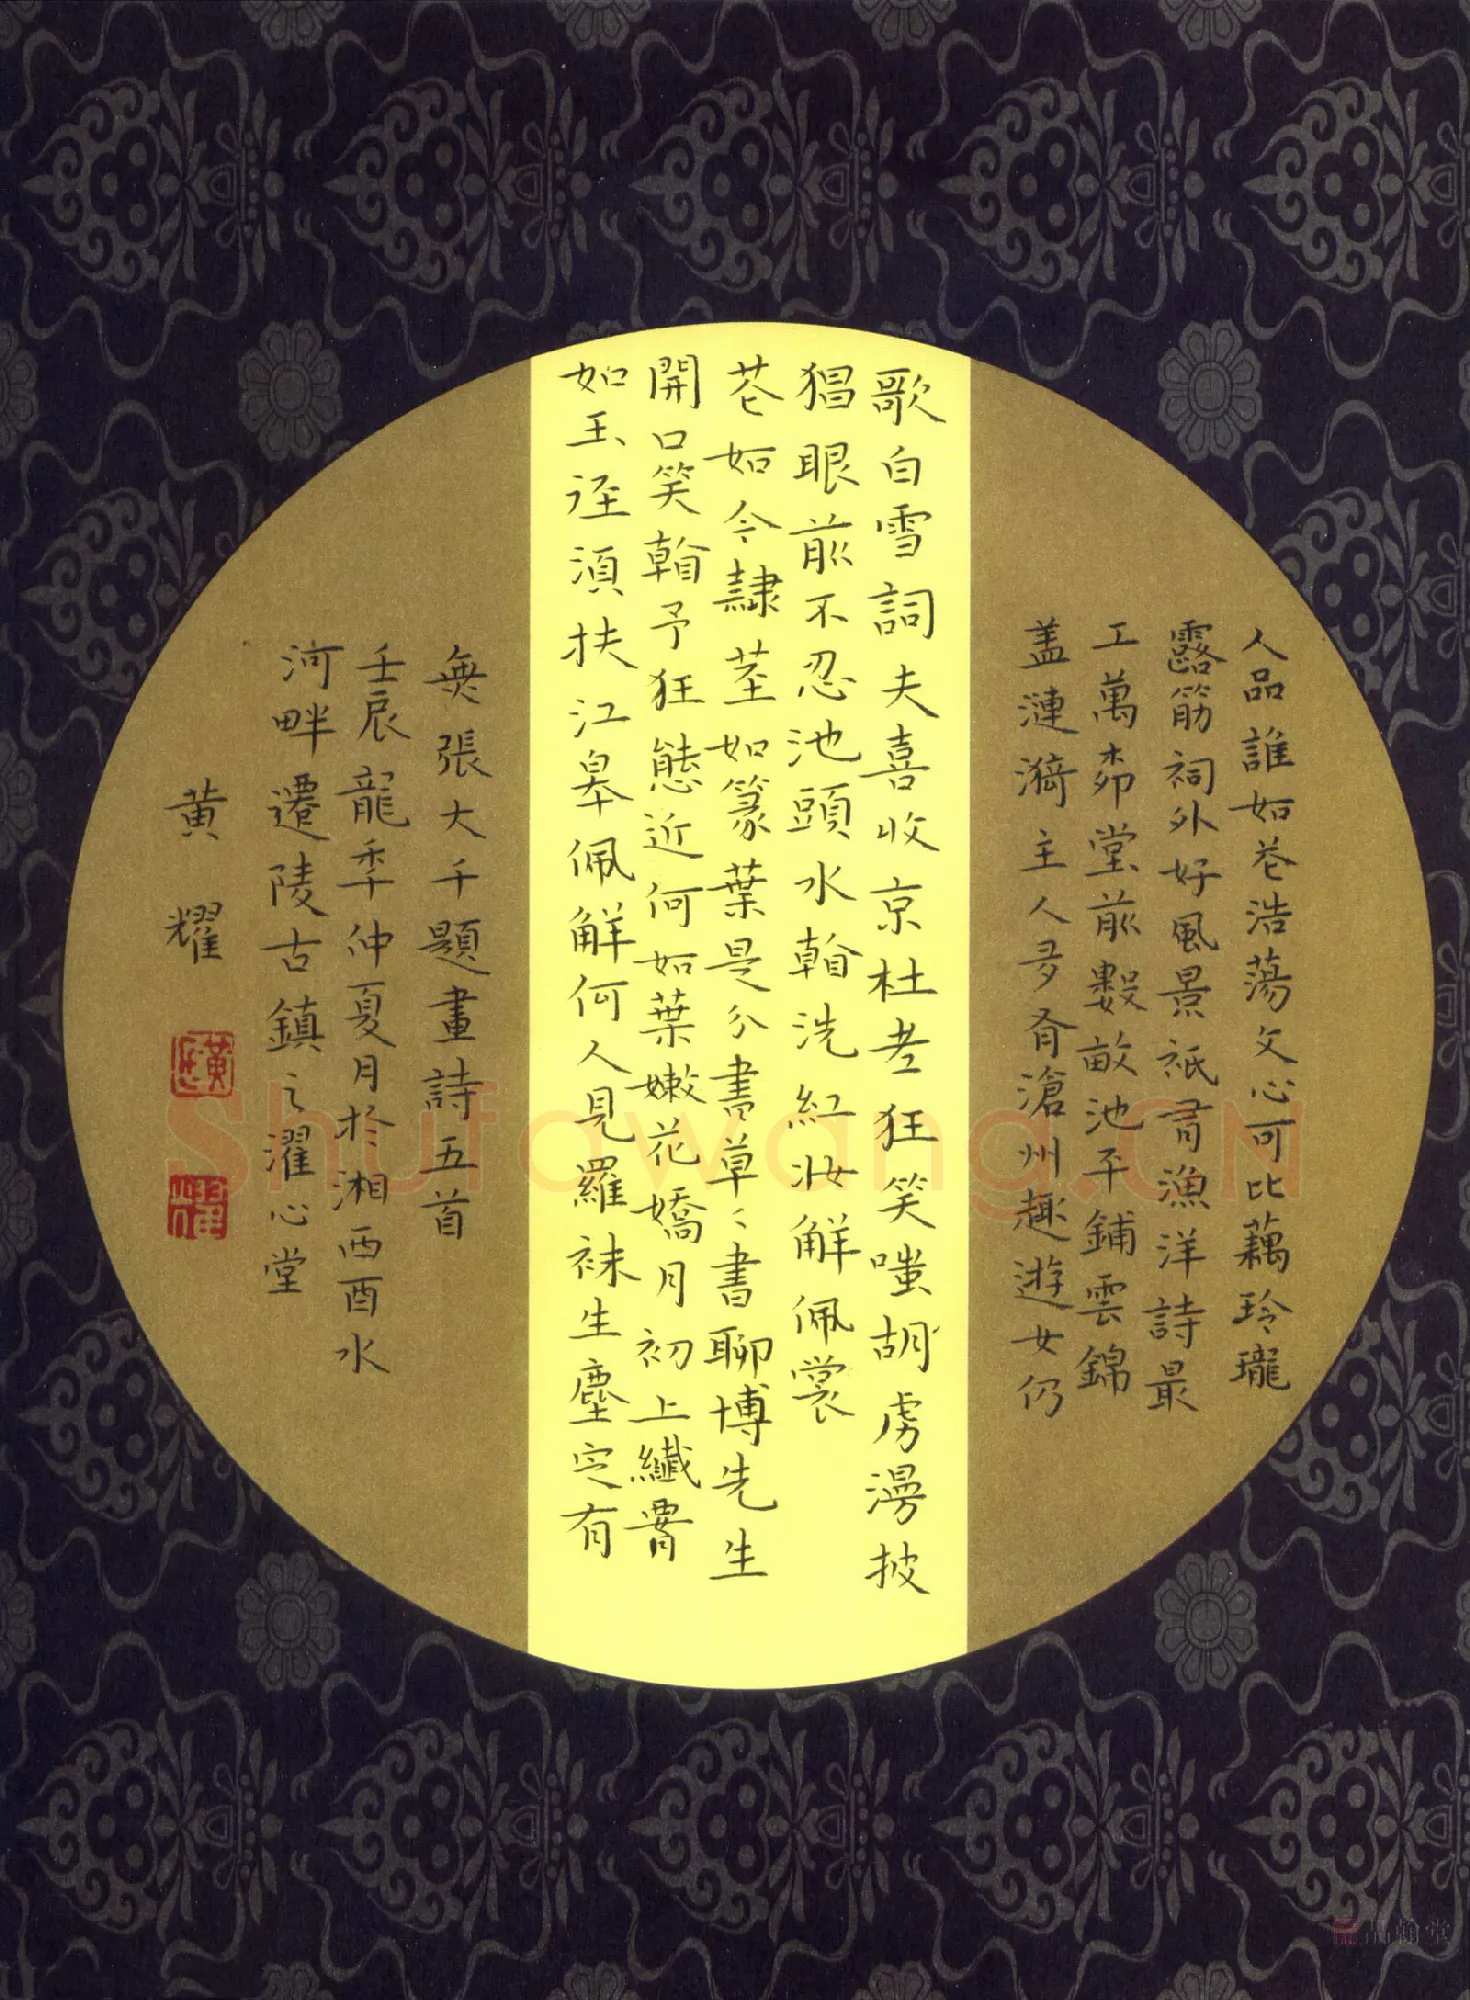 人品誰如花浩蕩文心可比藕玲瓏
露筋祠外好風景祇有漁洋詩最
工萬柳堂前數畝池平鋪雲錦
蓋漣漪主人多有滄州趣遊女仍
歌白雪詞夫喜收京杜老狂笑嗤胡虜漫披
猖眼前不忍池頭水翰洗紅妝解佩裳
花如今隸莖如篆葉是分書草〻書聊博先生
開口笑翰予狂態近何如葉嫩花嬌月初上纖霄
如玉迳須扶江皋佩解何人見羅袜生塵定有
無張大千題畫詩五首
壬辰龍年仲夏月於湘西酉水
河畔遷陵古鎮之濯心堂
黄耀
黄
耀
Shufawang.CN
品翰堂